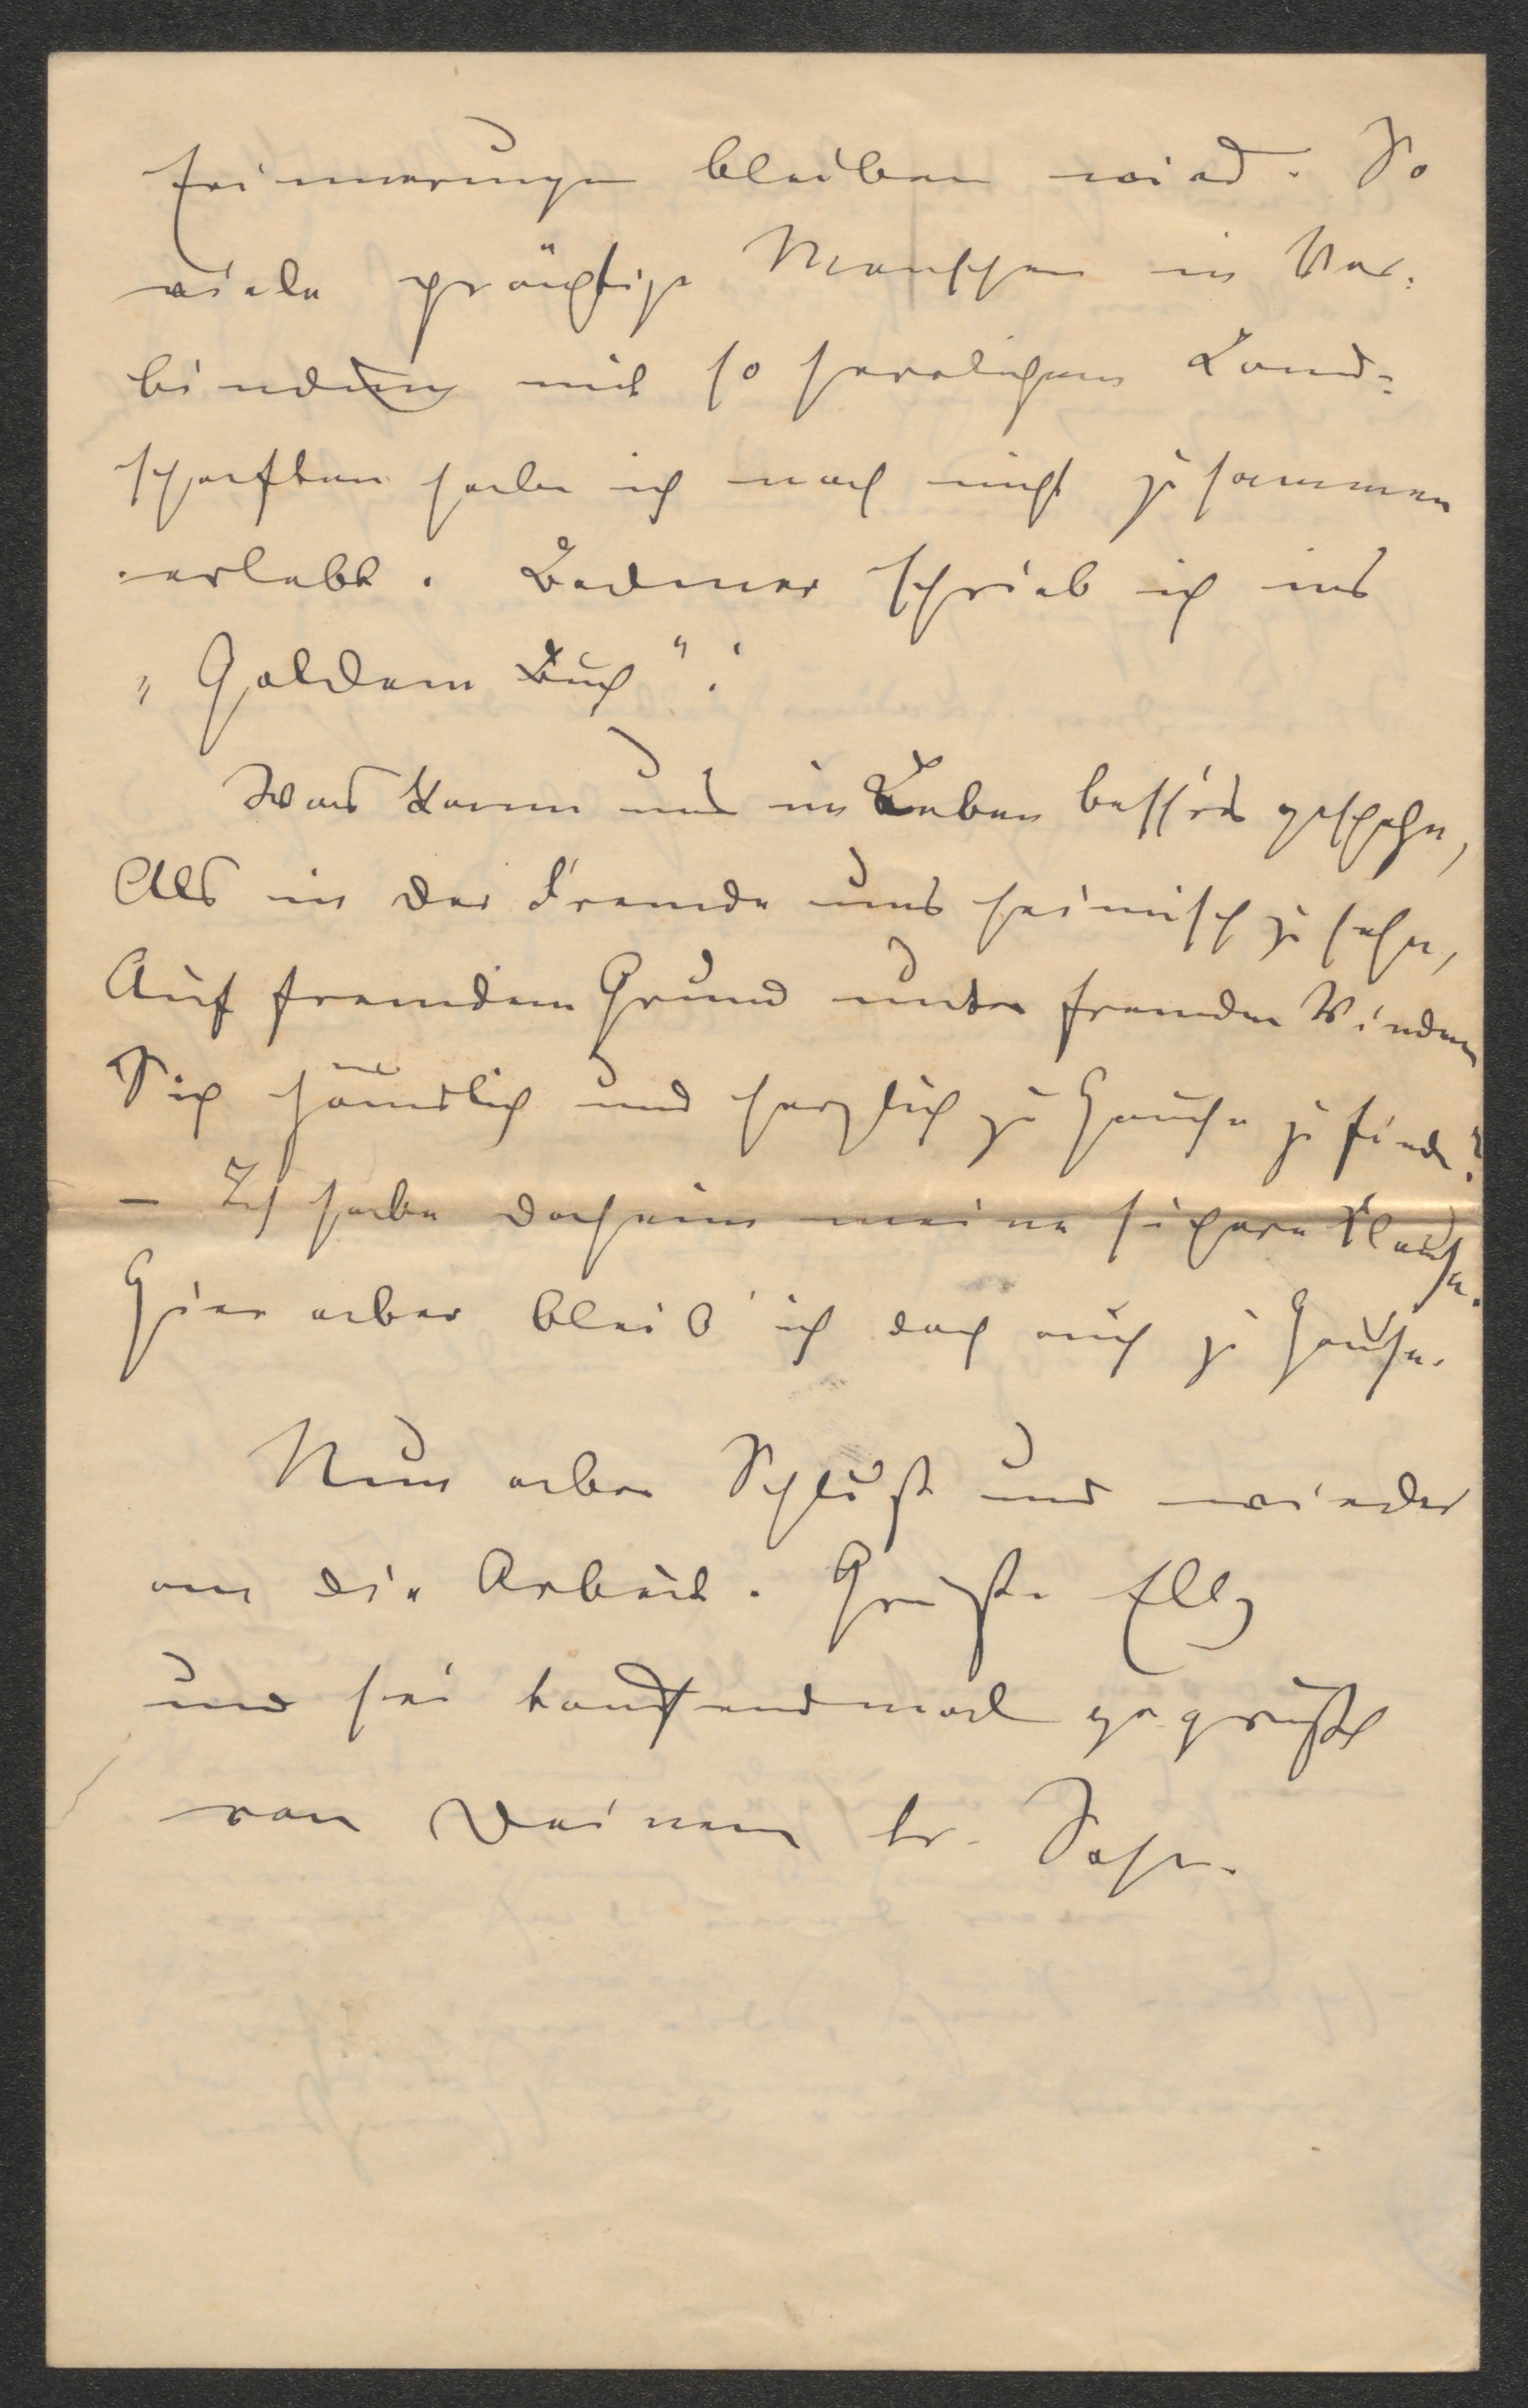 Erinnerungen bleiben wird. So
viele prächtige Menschen in Ver:
bindung mit so herrlichen Land:
schaften habe ich noch nicht zusammen
erlebt. Bodmer schrieb ich ins
„Goldene Buch":
Was kann uns im Leben bess'res geschehn,
Als in der Fremde uns heimisch zu sehn,
Auf fremdem Grund unter fremden Winden
Sich häuslich und herzlich zu Hause zu finden?
– Ich habe daheim meine sichere Klause.
Hier aber bleib' ich doch auch zu Hause.
Nun aber Schluß und wieder
an die Arbeit. Grüße Elly
und sei tausendmal gegrüßt
von Deinem tr. Sohn.